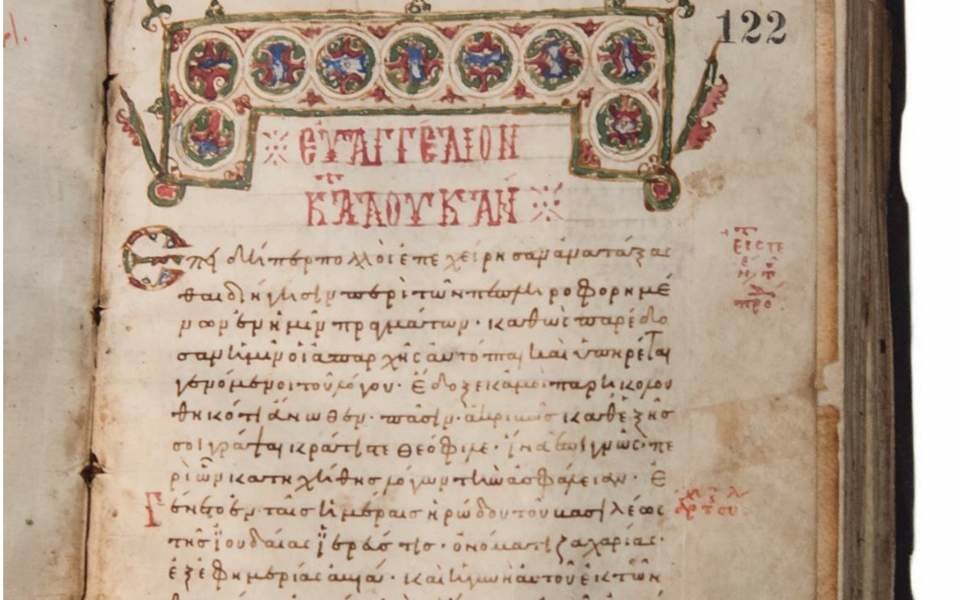 122
ΕΥΑΓΓΕΛΙΟΝ
ΚΑΤΑ ΛΟΥΚΑΝ
Ἐπειδήπερ πολλοὶ ἐπεχείρησαν ἀνατάξα
σθαι διήγησιν περὶ τῶν πεπληροφορημέ
νων ἐν ἡμῖν πραγμάτων· καθὼς παρέδο
σαν ἡμῖν οἱ ἀπαρχῆς αὐτόπται καὶ ὑπηρέται
γενόμενοι τοῦ λόγου· ἔδοξε κἀμοὶ παρηκολου
θηκότι ἄνωθεν· πᾶσιν· ἀκριβῶς καθεξῆς
σοι γράψαι κράτιστε Θεόφιλε· ἵνα ἐπιγνῷς· πε
ρὶ ὧν κατηχήθης λόγων τὴν ἀσφάλειαν· Ἐ
γένετο ἐν ταῖς ἡμέραις Ἡρώδου τοῦ βασιλέως
τῆς Ἰουδαίας ἱερεύς τις· ὀνόματι Ζαχαρίας·
ἐξ ἐφημερίας Ἀβιά· καὶ ἡ γυνὴ αὐτοῦ ἐκ τῶν